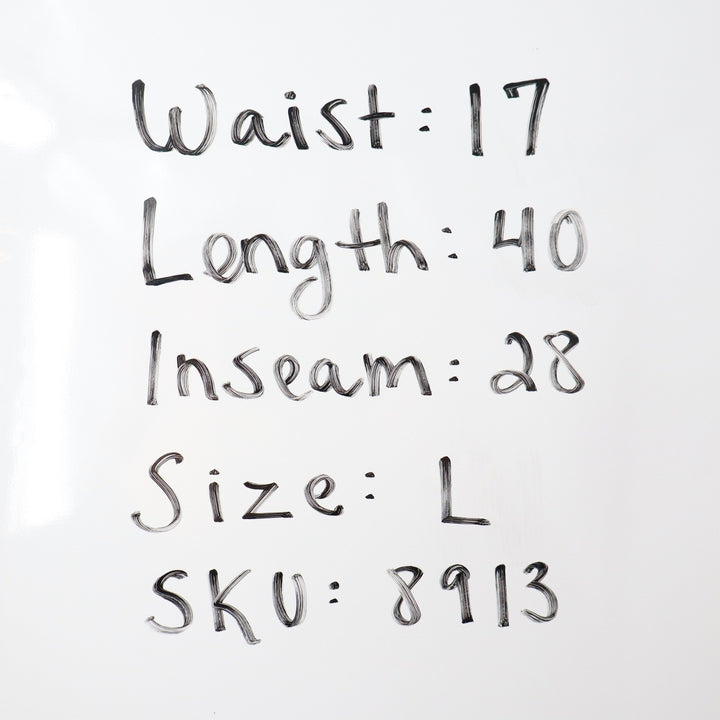 Waist: 17
Length: 40
Inseam: 28
Size: L
SKU: 8913